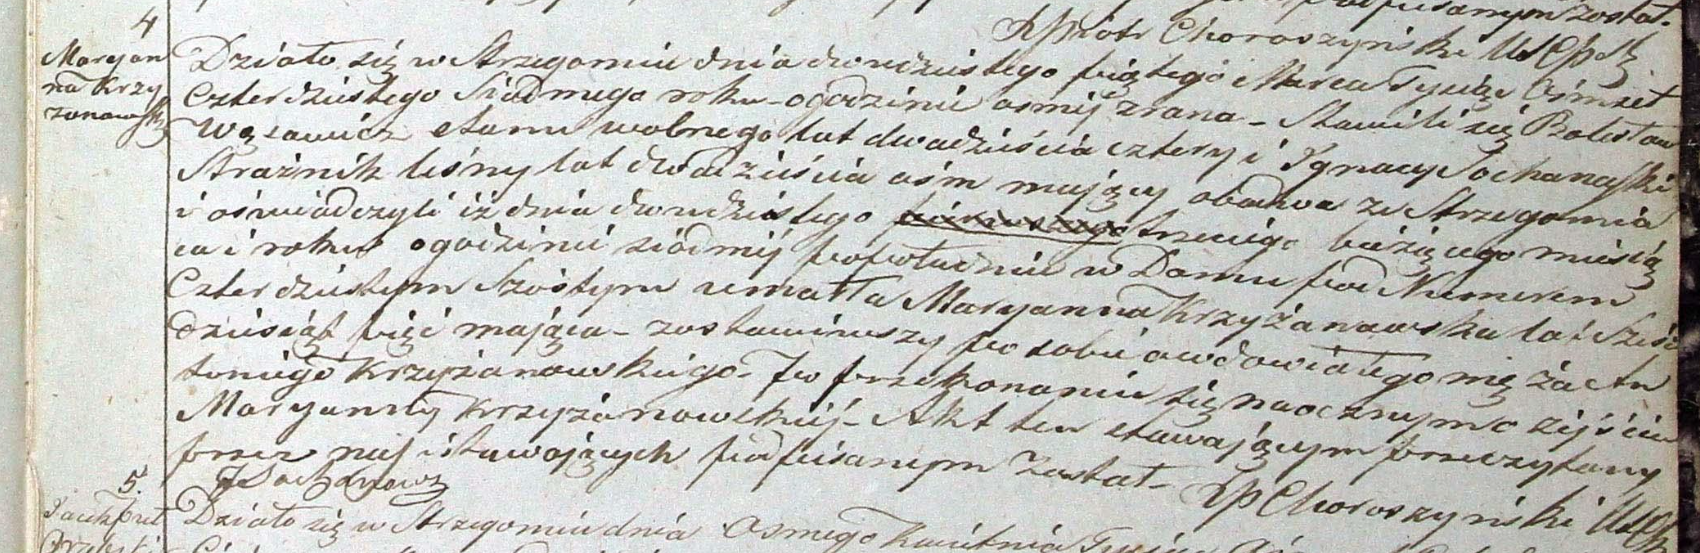 podpisanym został.
XPiotr Choroszyński
4
Maryan
na Krzy
żanowska
Działo się w Strzegomiu dnia dwudziestego piątego Marca Tysiąc Ośmset
Czterdziestego Siódmego roku o godzinie osmej zrana - Stawili się Bolesław
Wąsowicz stanu wolnego lat dwadzieścia cztery i Ignacy Sochanowski
Strażnik leśny lat dwadzieścia ośm mający obadwa ze Strzegomia
i oświadczyli iż dnia dwudziestego trzeciego bieżącego miesią
ca i roku o godzinie siódmej popołudniu w Domu pod Numerem
Czterdziestym Szóstym umarła Maryanna Krzyżanowska lat sześć
dziesiąt pięć mająca - zostawiwszy po sobie owdowiałego męża An
toniego Krzyżanowskiego. Po przekonaniu się naocznym o zejściu
Maryanny Krzyżanowskiej - Akt ten stawającym przeczytany
przez nas i stawających podpisanym został -
XPChoroszyński
5.
Działo się w Strzegomiu dnia Osmego Kwietnia Tysiąc